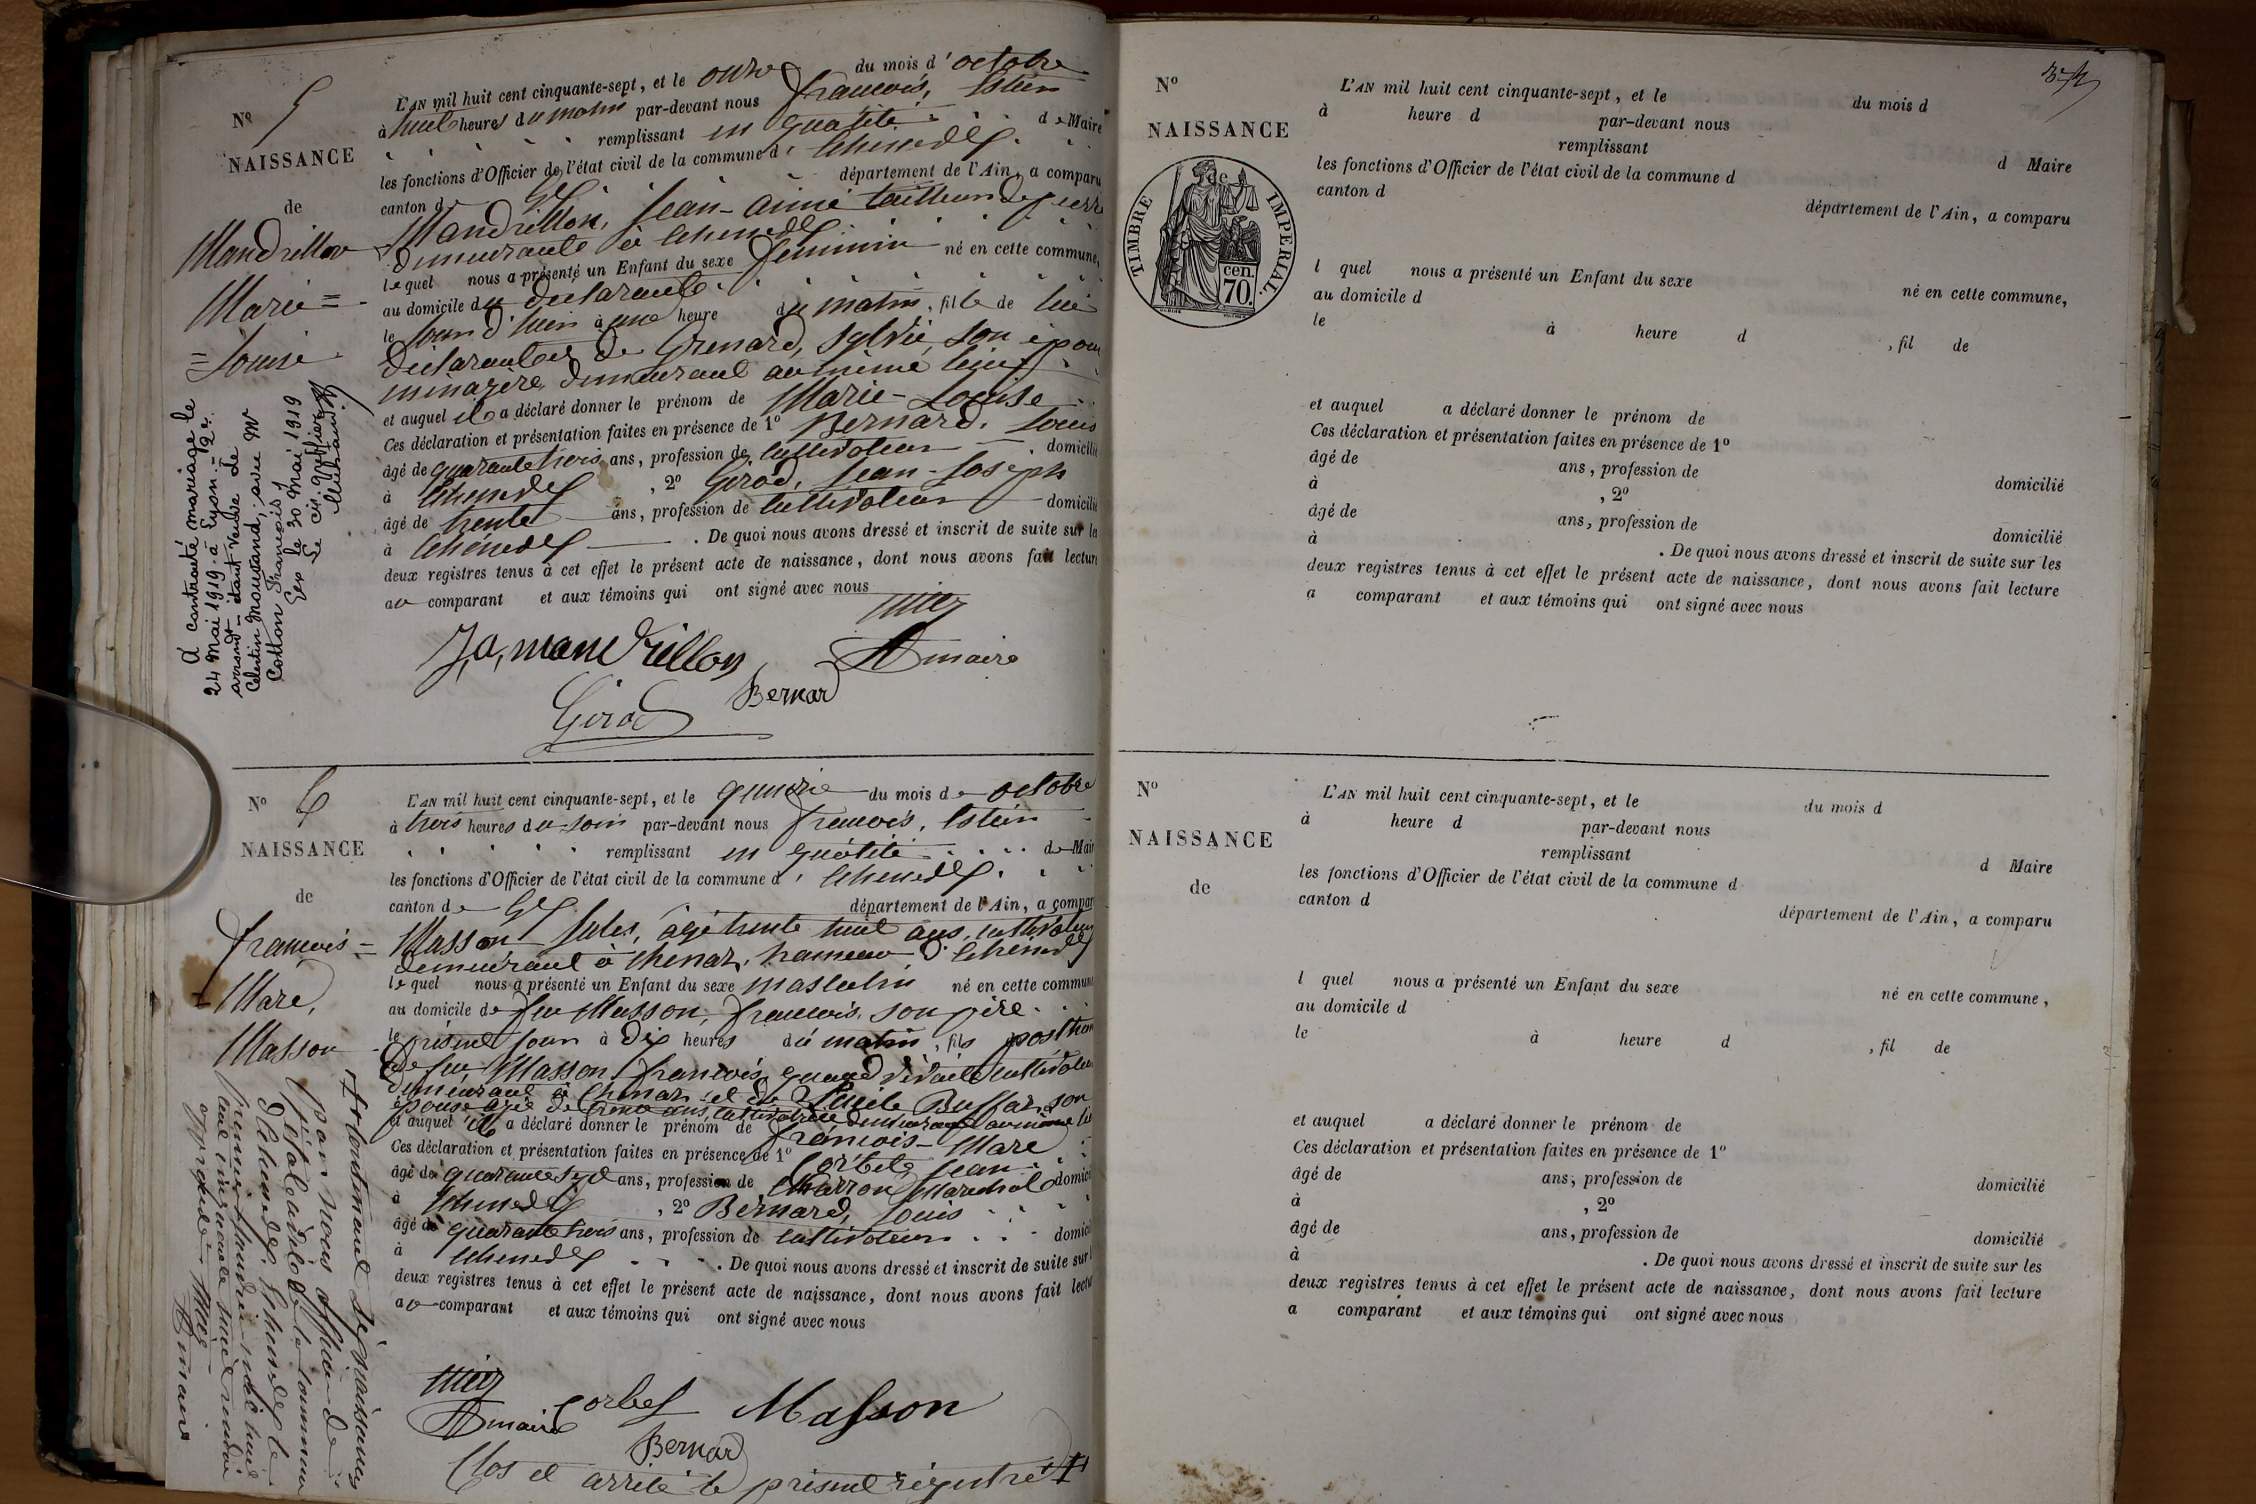 Nº 5
NAISSANCE
de
Mandrillon
Marie =
= Louise
L'AN mil huit cent cinquante-sept, et le onze du mois d'octobre
à huit heures du matin par-devant nous françois,
remplissant en qualité de Maire
les fonctions d'Officier de l'état civil de la commune d'
canton de Gex département de l'Ain, a comparu
Mandrillon, Jean-aimé tailleur de pierre
demeurant à
lequel nous a présenté un Enfant du sexe féminin né en cette commune,
au domicile du déclarant
le jour d'hier à une heure du matin, fille de lui
déclarant et de Grenard, Sylvie, son épouse
ménagère demeurant au même lieu
et auquel il a déclaré donner le prénom de Marie-Louise
Ces déclaration et présentation faites en présence de 1º Bernard, Louis
âgé de quarante trois ans, profession de cultivateur domicilié
à , 2º Girod, Jean-Joseph
âgé de trente ans, profession de cultivateur domicilié
à . De quoi nous avons dressé et inscrit de suite sur les
deux registres tenus à cet effet le présent acte de naissance, dont nous avons fait lecture
au comparant et aux témoins qui ont signé avec nous
J,a, mandrillon
maire
Bernard
Girod
A contracté mariage le
24 Mai 1919 à Lyon - 2e
arrondt - étant Veuve de
Célestin avec Mr
Cotton François
Gex le 30 Mai 1919
Le cis. greffier
Nº 6
NAISSANCE
de
françois =
= Marc,
Masson
L'AN mil huit cent cinquante-sept, et le quinze du mois de octobre
à trois heures du soir par-devant nous françois,
remplissant en qualité de Maire
les fonctions d'Officier de l'état civil de la commune d'
canton de Gex département de l'Ain, a comparu
Masson Jules, âgé trente huit ans, cultivateur
demeurant à hameau d'
lequel nous a présenté un Enfant du sexe masculin né en cette commune
au domicile de feu Masson, françois, son père
le présent jour à dix heures du matin, fils posthume
de feu Masson françois, quand vivait cultivateur
demeurant à et de Lucile son
épouse âgée de trente ans, demeurant au même lieu
et auquel il a déclaré donner le prénom de françois-Marc
Ces déclaration et présentation faites en présence de 1º Jean
âgé de quarante sept ans, profession de Maréchal domicilié
à , 2º Bernard, Louis
âgé de quarante trois ans, profession de cultivateur domicilié
à . De quoi nous avons dressé et inscrit de suite sur les
deux registres tenus à cet effet le présent acte de naissance, dont nous avons fait lecture
au comparant et aux témoins qui ont signé avec nous
maire
Masson
Bernard
Clos et arrêté le présent régistre
contenant six naissances
par nous officier de
l'état civil de la commune
d'
premier janvier mil huit
cent cinquante huit
approuvé
maire
Nº
NAISSANCE
TIMBRE IMPERIAL.
cen.
70.
L'AN mil huit cent cinquante-sept, et le du mois d
à heure d par-devant nous
remplissant d Maire
les fonctions d'Officier de l'état civil de la commune d
canton d département de l'Ain, a comparu
l quel nous a présenté un Enfant du sexe né en cette commune,
au domicile d
le à heure d , fil de
et auquel a déclaré donner le prénom de
Ces déclaration et présentation faites en présence de 1º
âgé de ans, profession de domicilié
à , 2º
âgé de ans, profession de domicilié
à . De quoi nous avons dressé et inscrit de suite sur les
deux registres tenus à cet effet le présent acte de naissance, dont nous avons fait lecture
a comparant et aux témoins qui ont signé avec nous
Nº
NAISSANCE
de
L'AN mil huit cent cinquante-sept, et le du mois d
à heure d par-devant nous
remplissant d Maire
les fonctions d'Officier de l'état civil de la commune d
canton d département de l'Ain, a comparu
l quel nous a présenté un Enfant du sexe né en cette commune,
au domicile d
le à heure d , fil de
et auquel a déclaré donner le prénom de
Ces déclaration et présentation faites en présence de 1º
âgé de ans, profession de domicilié
à , 2º
âgé de ans, profession de domicilié
à . De quoi nous avons dressé et inscrit de suite sur les
deux registres tenus à cet effet le présent acte de naissance, dont nous avons fait lecture
a comparant et aux témoins qui ont signé avec nous